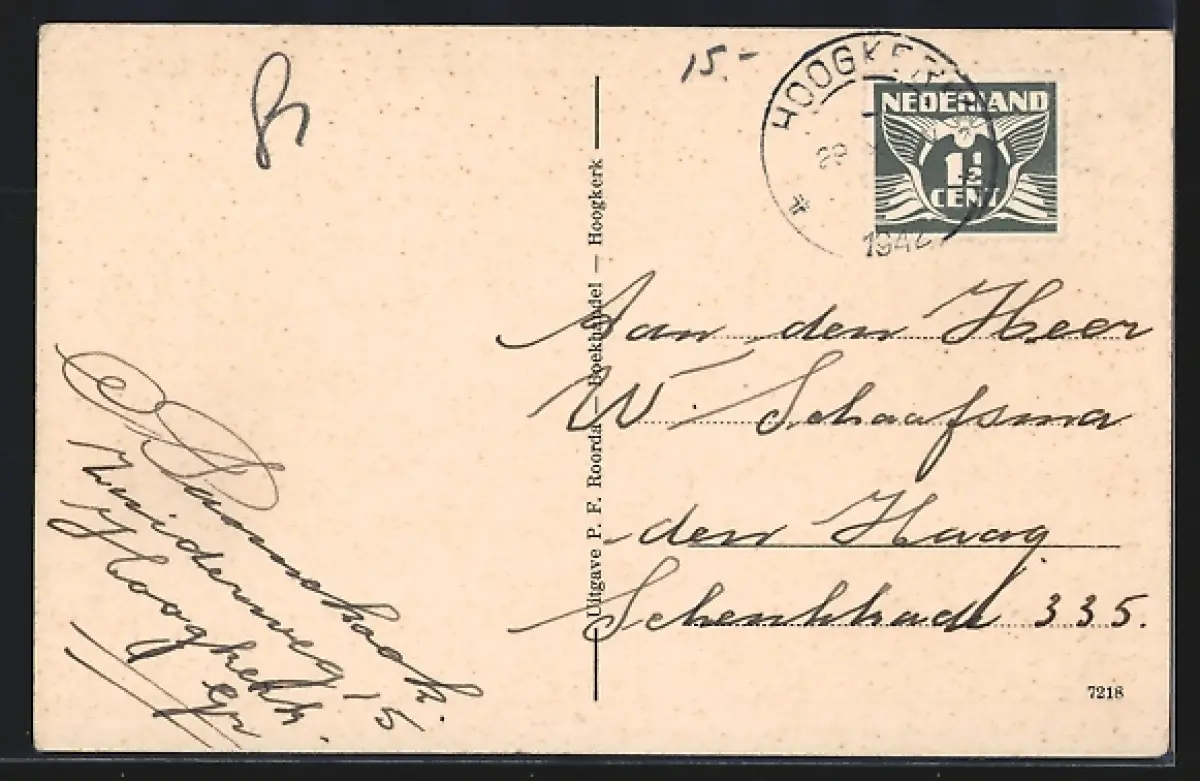 15.-
HOOGKERK
1942
NEDERLAND
1½
CENT
Aan den Heer
W. Schaafsma
den Haag
Schenkkade 335.
Uitgave P. F. Roorda — Boekhandel — Hoogkerk
Zuiderweg 15
Hoogkerk.
Gr
7218